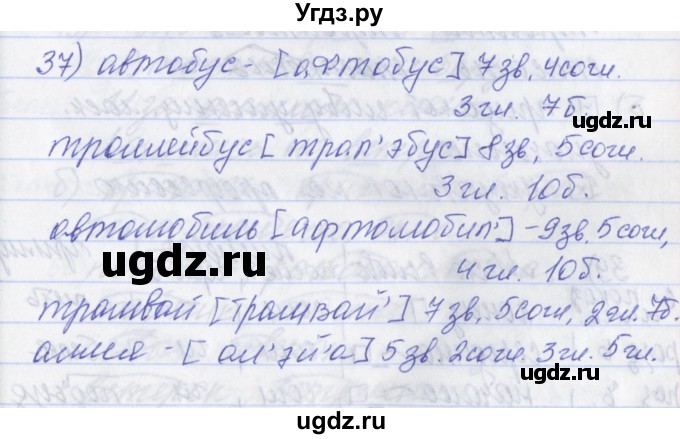 Угдз.ру
37) автобус - [афтобус] 7зв, 4согл.
3 гл. 7б.
ugdz.ru
троллейбус [трал'эбус] 8зв, 5согл.
3 гл. 10б.
ugdz.ru
автомобиль [афтомобил'] - 9зв. 5согл,
4 гл. 10б.
ugdz.ru
трамвай [трамвай'] 7 зв, 5согл, 2гл. 7б.
аллея - [ал'эй'а] 5 зв. 2согл. 3 гл. 5гл.
ugdz.ru
ugdz.ru